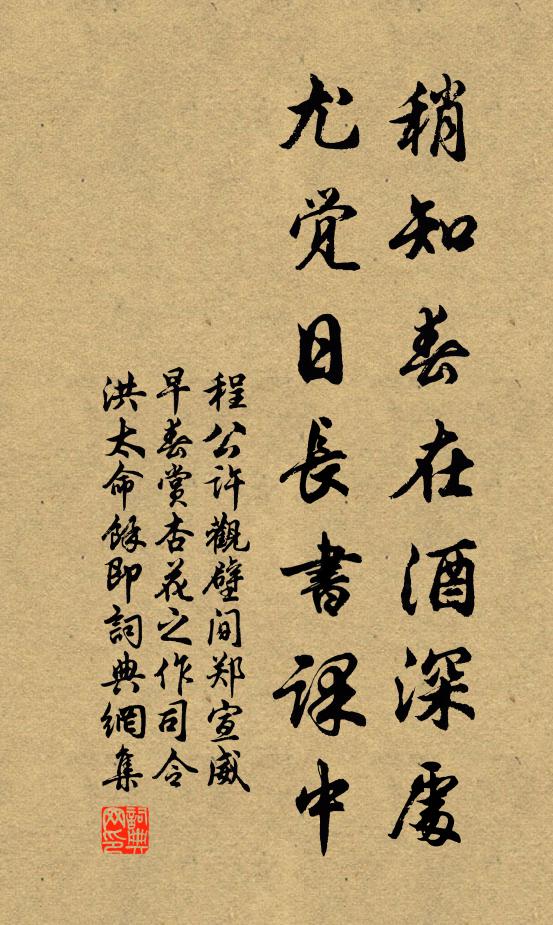 稍知春在酒深處
尤覺日長書課中
程公许觀壁间郑宣威
早春賞杏花之作司令
洪太命餘即詞典網集
詞典网印